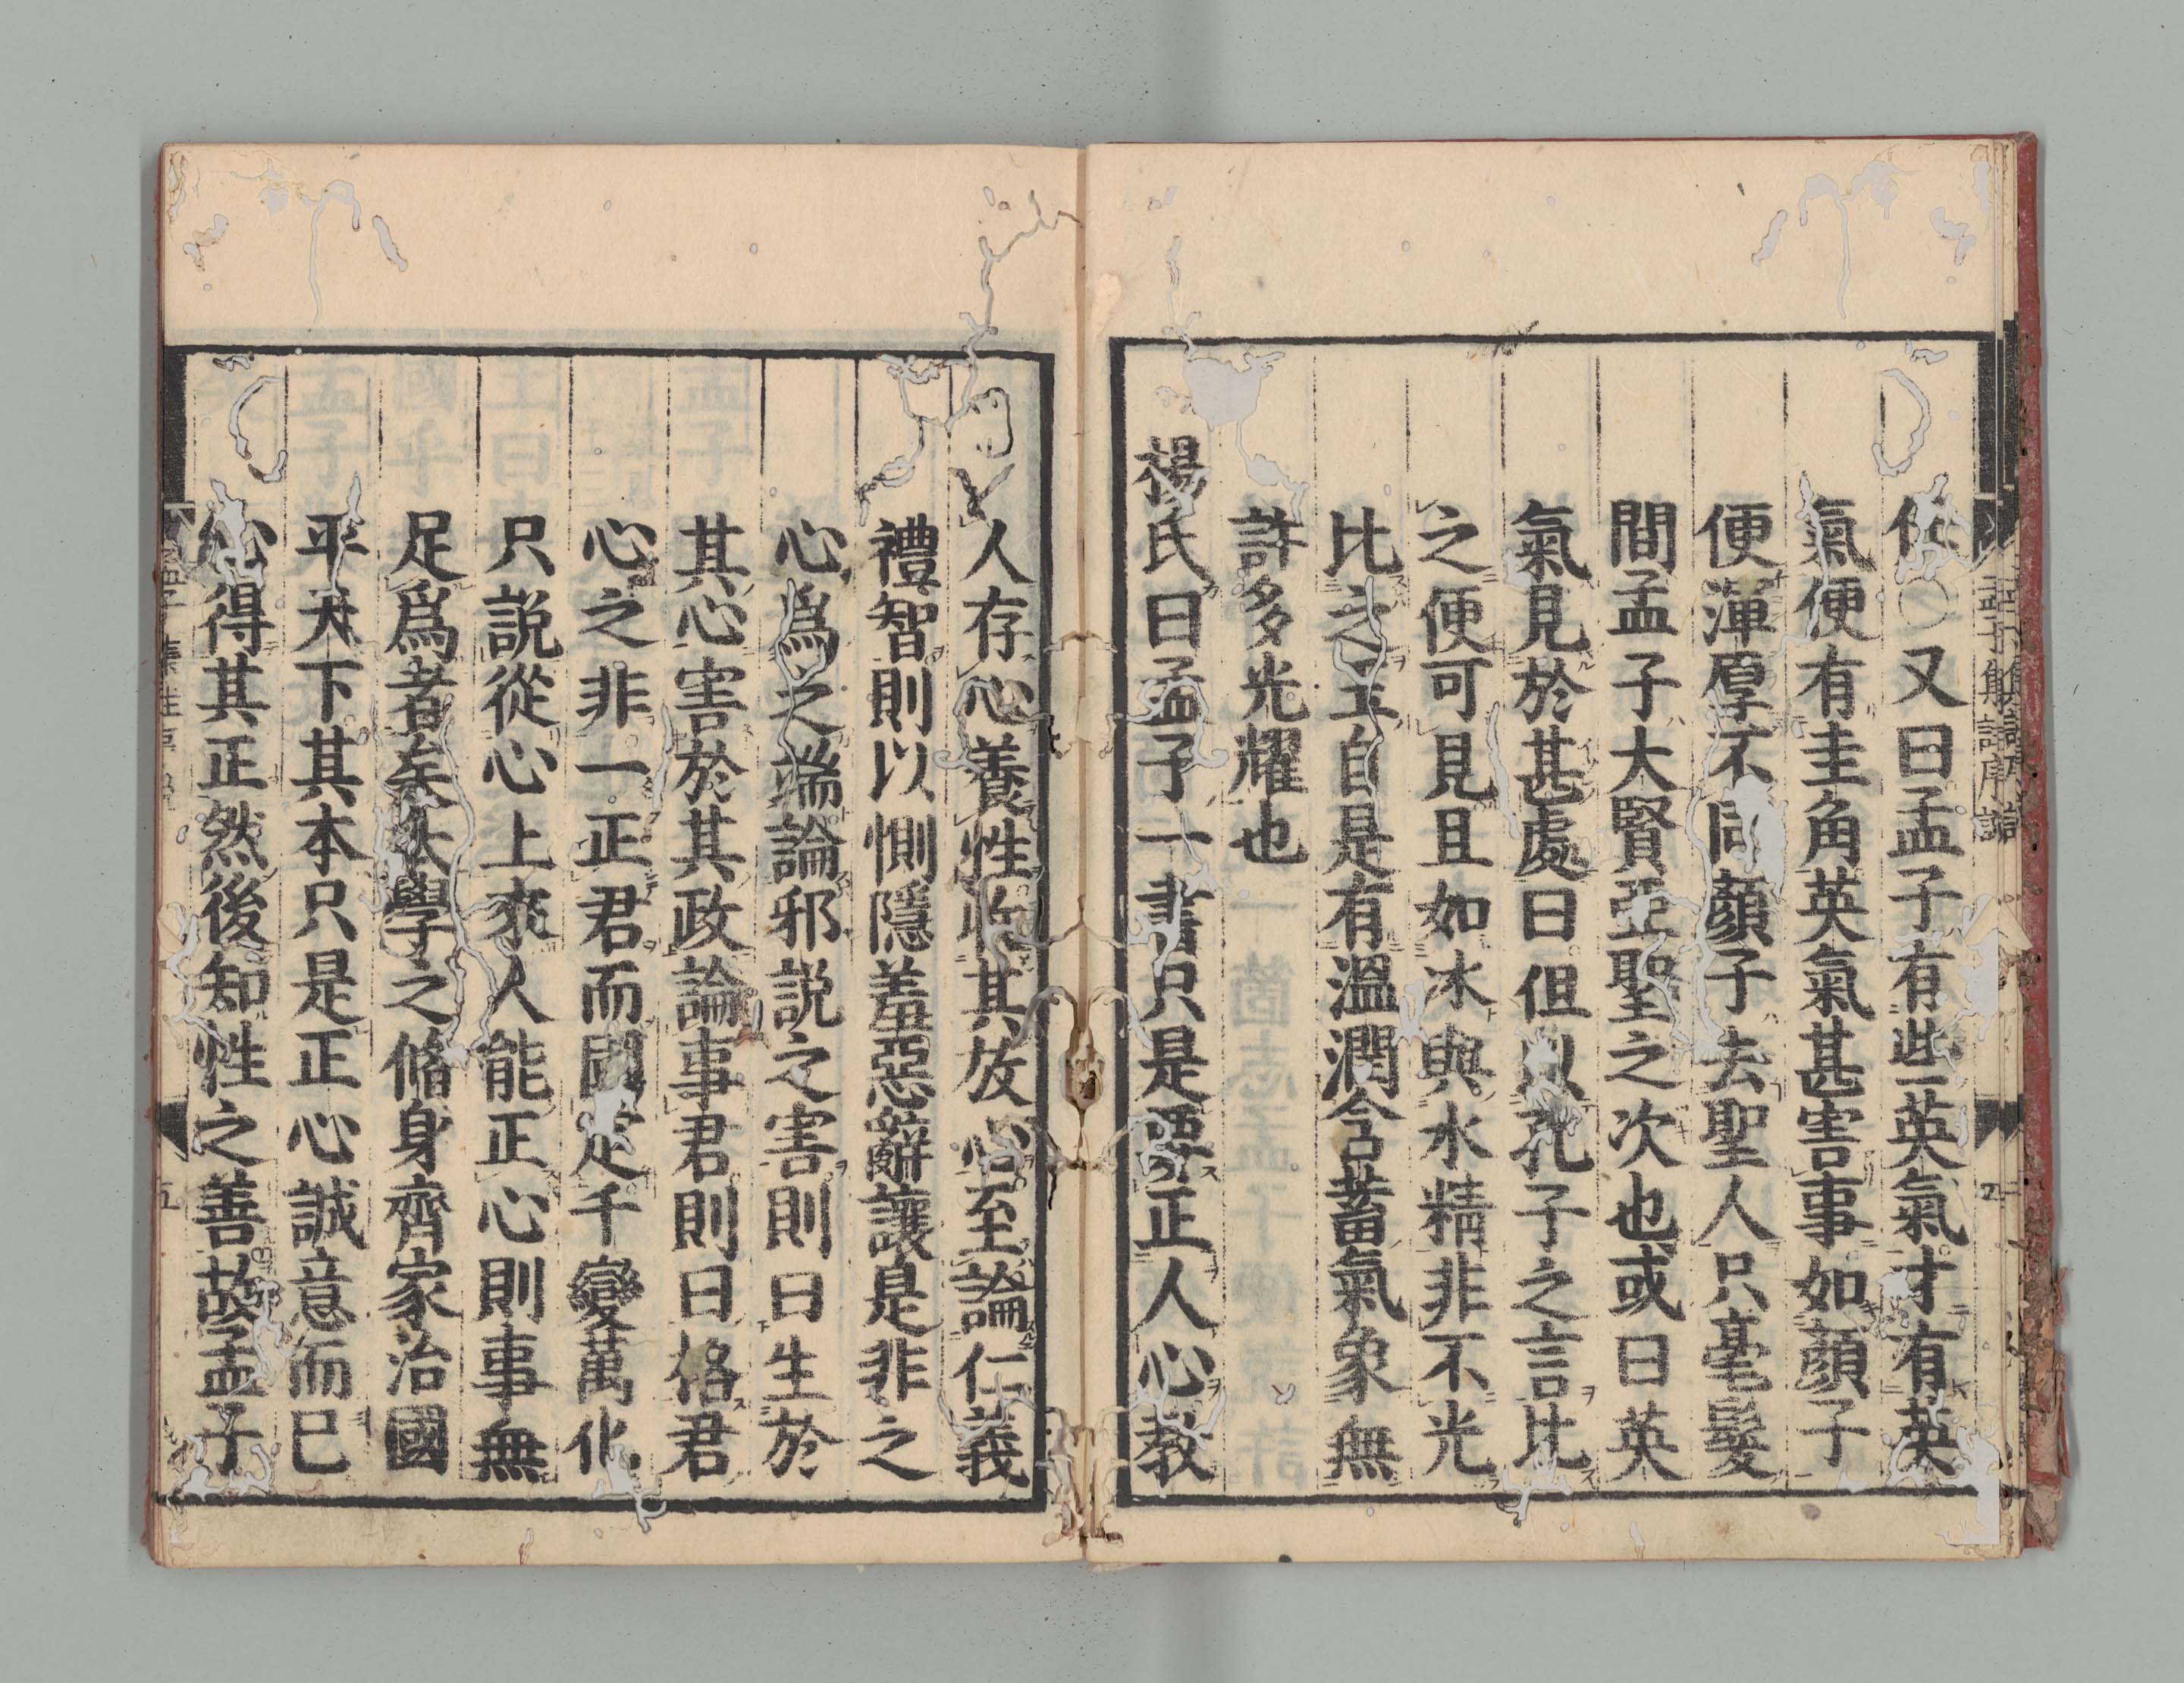 ○又曰孟子有些英氣才有英
氣便有圭角英氣甚害事如顔子
便渾厚不同顔子去聖人只毫髮
間孟子大賢亞聖之次也或曰英
氣見於甚處曰但以孔子之言比
之便可見且如冰與水精非不光
比之玉自是有溫潤含蓄氣象無
許多光耀也
楊氏曰孟子一書只是要正人心教
人存心養性收其放心至論仁義
禮智則以惻隱羞惡辭讓是非之
心爲之端論邪説之害則曰生於
其心害於其政論事君則曰格君
心之非一正君而國定千變萬化
只説從心上來人能正心則事無
足爲者矣大學之脩身齊家治國
平天下其本只是正心誠意而已
心得其正然後知性之善故孟子